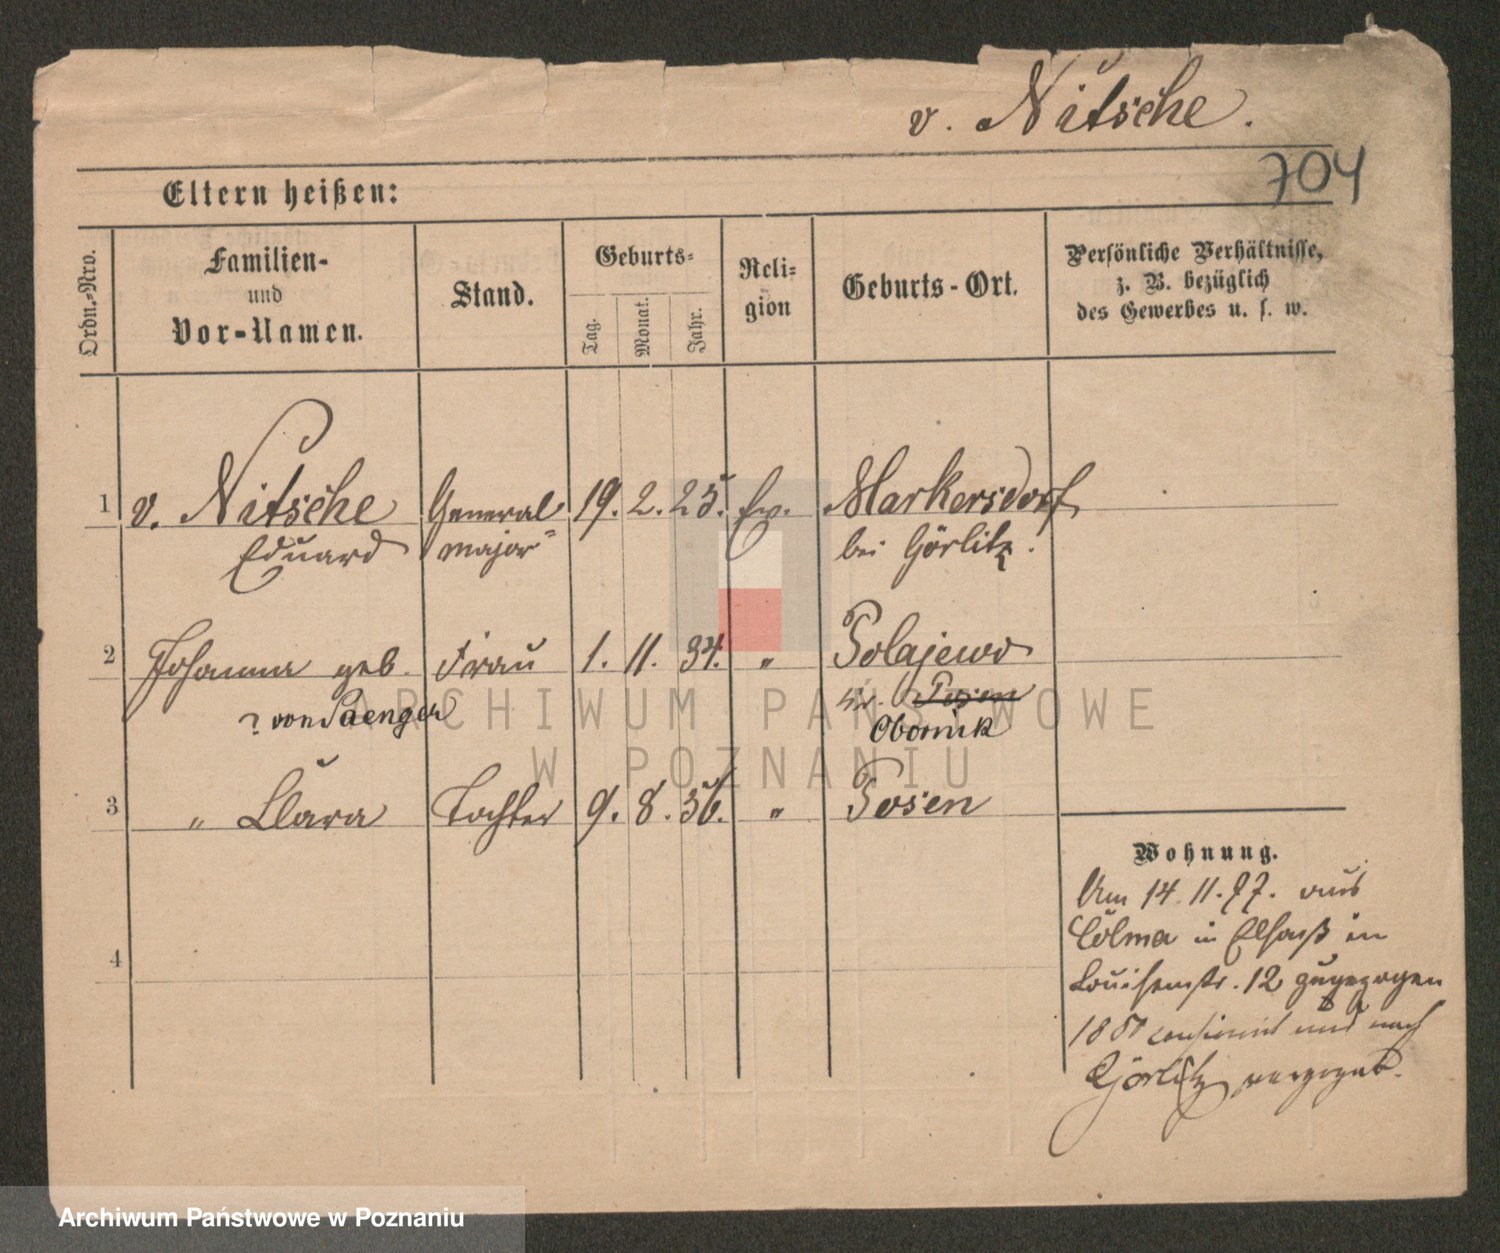 v. Nitsche.
704
Eltern heißen:
Ordn.-Nro.
Familien-
und
Vor-Namen.
Stand.
Geburts-
Tag.
Monat.
Jahr.
Reli-
gion
Geburts-Ort.
Persönliche Verhältnisse,
z. B. bezüglich
des Gewerbes u. s. w.
1 v. Nitsche General 19. 2. 25. Ev. Markersdorf
Eduard major bei Görlitz.
2 Johanna geb. Frau 1. 11. 34. " Polajewo
? von Saenger Kr. Posen
Obornik
3 " Clara Tochter 9. 8. 56. " Posen
4
Wohnung.
Am 14. 11. 77. aus
Colmar in Elsaß in
Louisenstr. 12 zugezogen
und nach
Görlitz
ARCHIWUM PAŃSTWOWE
W POZNANIU
Archiwum Państwowe w Poznaniu